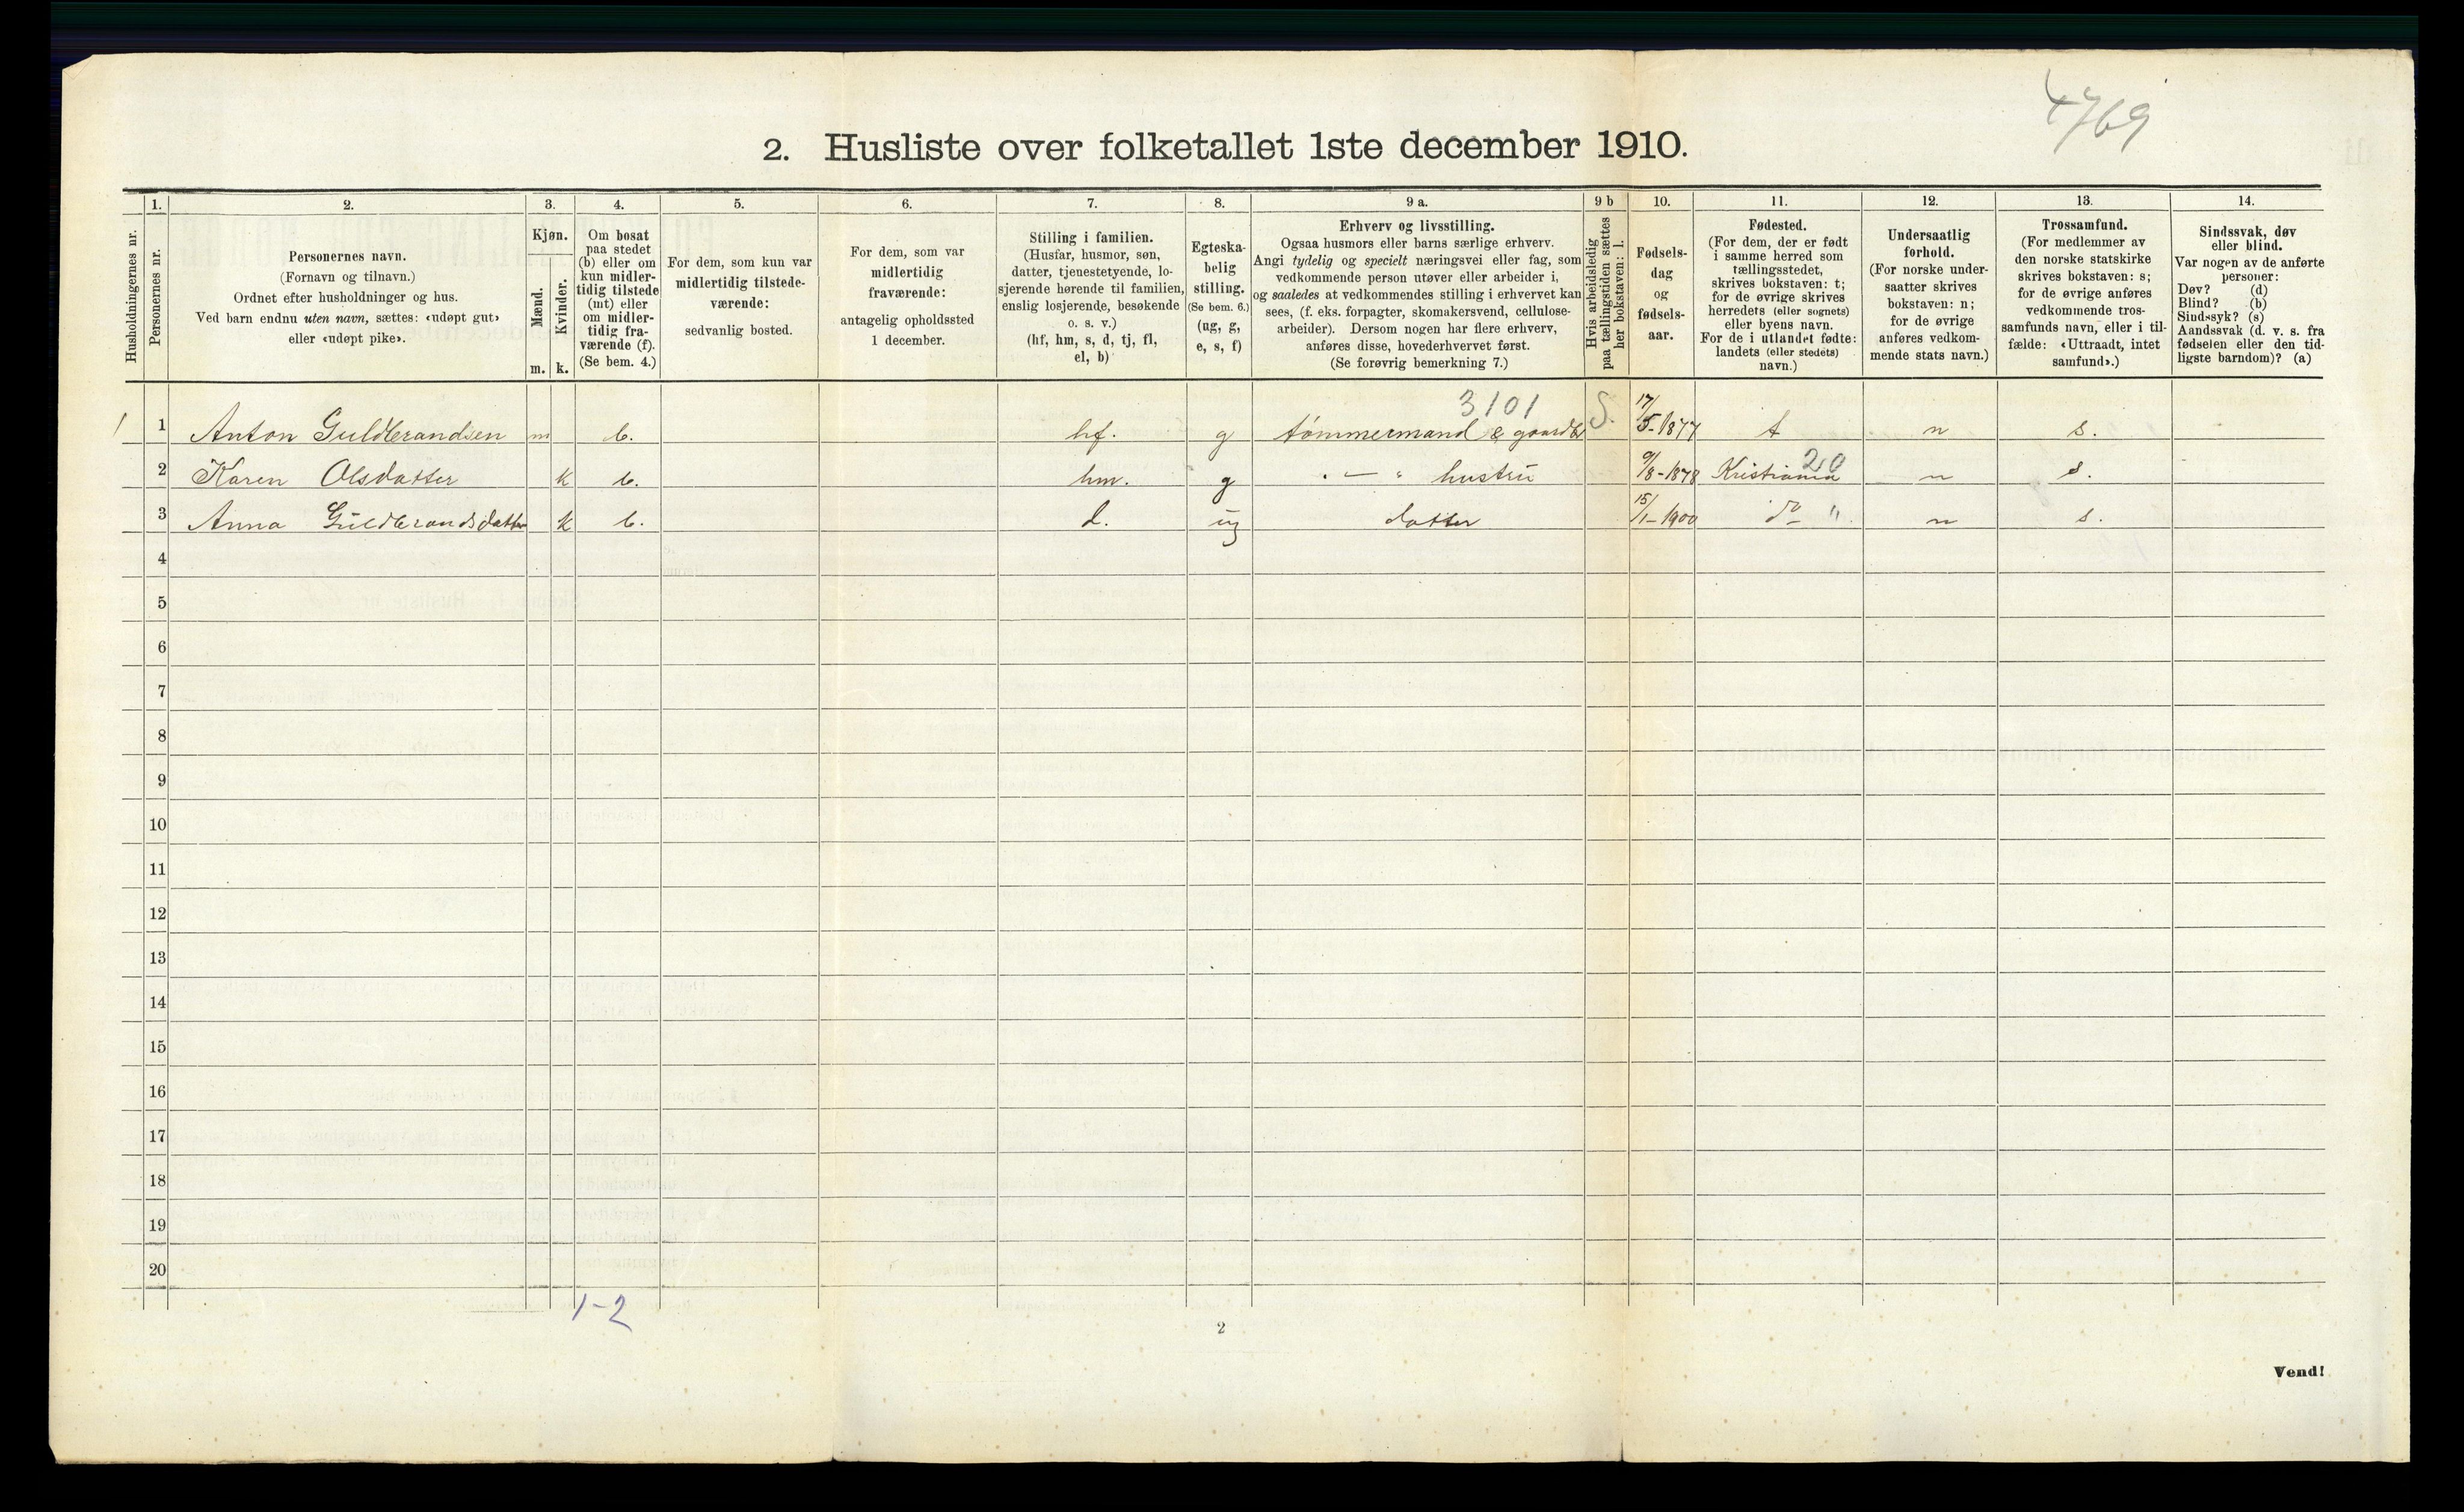 4769
2. Husliste over folketallet 1ste december 1910.
Husholdningernes nr.
1.
Personernes nr.
2.
Personernes navn.
(Fornavn og tilnavn.)
Ordnet efter husholdninger og hus.
Ved barn endnu uten navn, sættes: «udøpt gut»
eller «udøpt pike».
3.
Kjøn.
Mænd.
Kvinder.
m. k.
4.
Om bosat
paa stedet
(b) eller om
kun midler-
tidig tilstede
(mt) eller
om midler-
tidig fra-
værende (f).
(Se bem. 4.)
5.
For dem, som kun var
midlertidig tilstede-
værende:
sedvanlig bosted.
6.
For dem, som var
midlertidig
fraværende:
antagelig opholdssted
1 december.
7.
Stilling i familien.
(Husfar, husmor, søn,
datter, tjenestetyende, lo-
sjerende hørende til familien,
enslig losjerende, besøkende
o. s. v.)
(hf, hm, s, d, tj, fl,
el, b)
8.
Egteska-
belig
stilling.
(Se bem. 6.)
(ug, g,
e, s, f)
9 a.
Erhverv og livsstilling.
Ogsaa husmors eller barns særlige erhverv.
Angi tydelig og specielt næringsvei eller fag, som
vedkommende person utøver eller arbeider i,
og saaledes at vedkommendes stilling i erhvervet kan
sees, (f. eks. forpagter, skomakersvend, cellulose-
arbeider). Dersom nogen har flere erhverv,
anføres disse, hovederhvervet først.
(Se forøvrig bemerkning 7.)
9 b
Hvis arbeidsledig
paa tællingstiden sættes
her bokstaven: l.
10.
Fødsels-
dag
og
fødsels-
aar.
11.
Fødested.
(For dem, der er født
i samme herred som
tællingsstedet,
skrives bokstaven: t;
for de øvrige skrives
herredets (eller sognets)
eller byens navn.
For de i utlandet fødte:
landets (eller stedets)
navn.)
12.
Undersaatlig
forhold.
(For norske under-
saatter skrives
bokstaven: n;
for de øvrige
anføres vedkom-
mende stats navn.)
13.
Trossamfund.
(For medlemmer av
den norske statskirke
skrives bokstaven: s;
for de øvrige anføres
vedkommende tros-
samfunds navn, eller i til-
fælde: «Uttraadt, intet
samfund».)
14.
Sindssvak, døv
eller blind.
Var nogen av de anførte
personer:
Døv? (d)
Blind? (b)
Sindssyk? (s)
Aandssvak (d. v. s. fra
fødselen eller den tid-
ligste barndom)? (a)
3101
1 1 Anton Guldbrandsen m b. hf. g tømmermand & gaardbr S. 17/5-1877 t n s.
20
2 Karen Olsdatter k b. hm. g - " hustru 9/8-1878 Kristiania n s.
3 Anna Guldbrandsdatter k b. d. ug datter 15/1-1900 do " n s.
4
5
6
7
8
9
10
11
12
13
14
15
16
17
18
19
20
1-2
2
Vend!